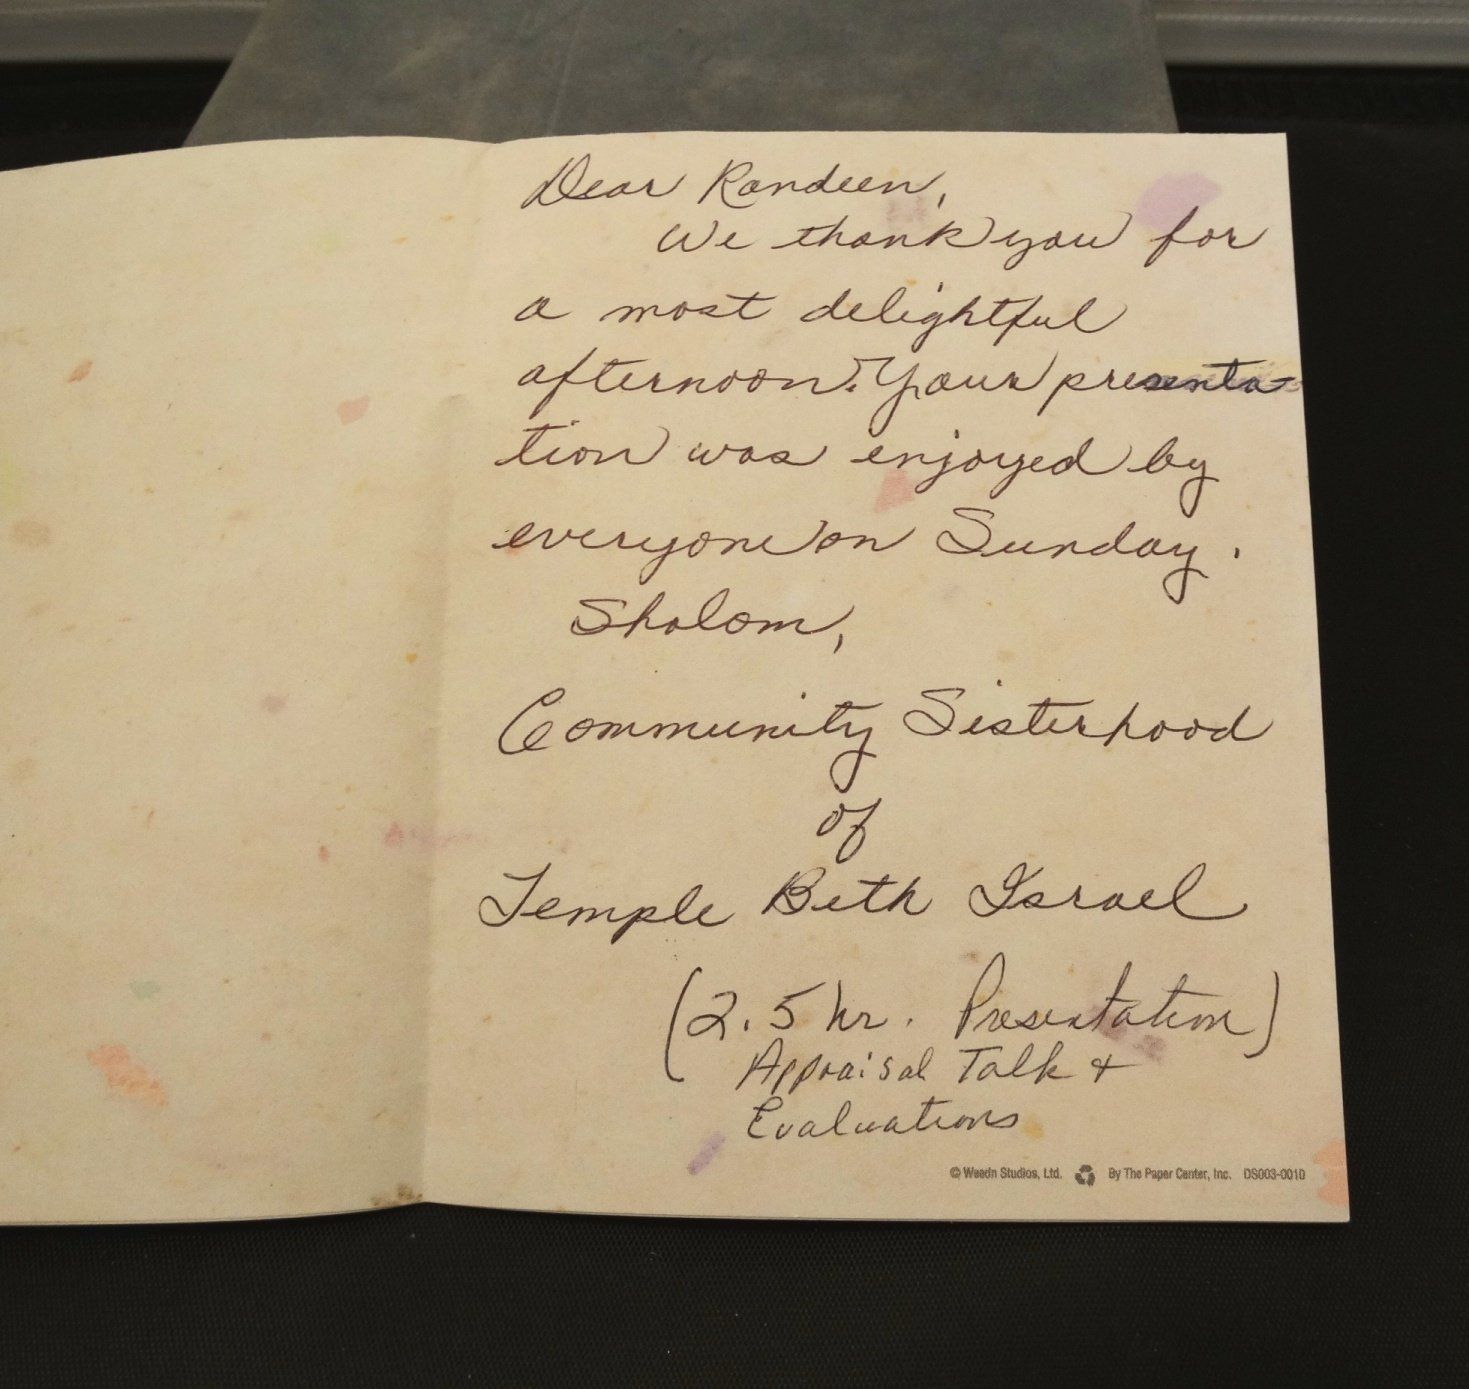 Dear Randeen,
We thank you for
a most delightful
afternoon. Your presenta-
tion was enjoyed by
everyone on Sunday.
Shalom,
Community Sisterhood
of
Temple Beth Israel
(2.5 hr. Presentation)
Appraisal Talk &
Evaluations
© Weedn Studios, Ltd. By The Paper Center, Inc. DS003-0010